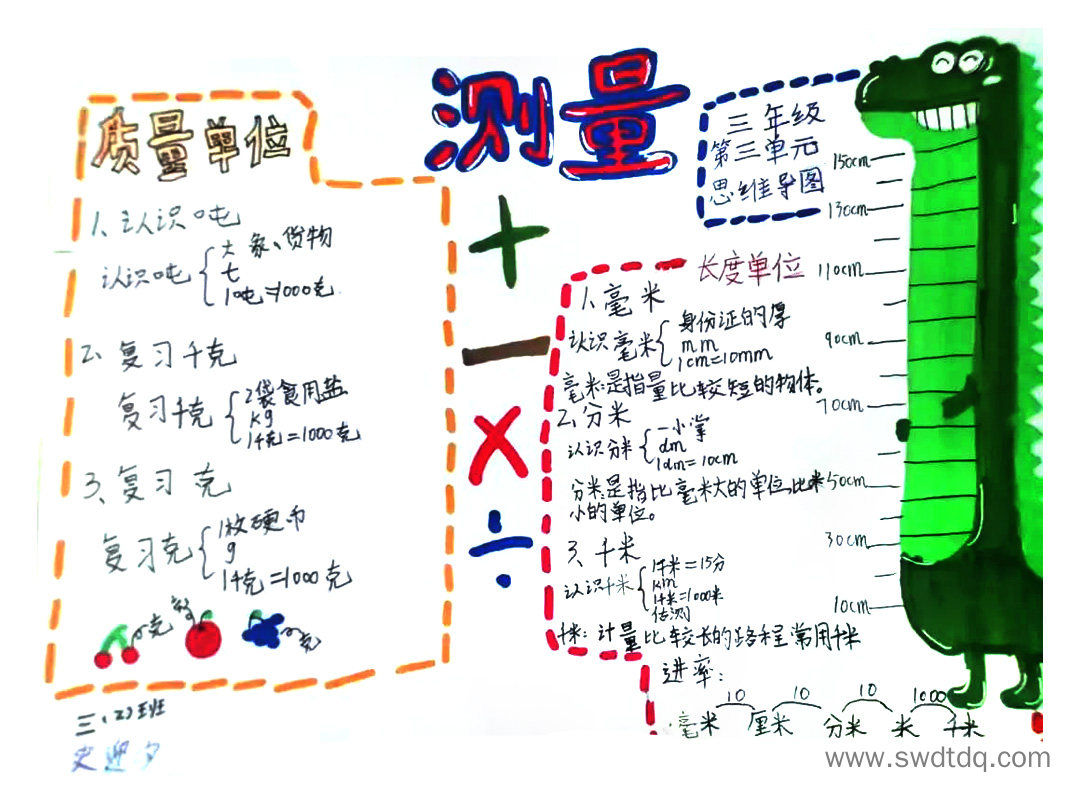 测量
三年级
第三单元
思维导图
质量单位
1、认识吨
认识吨
大象、货物
七
1吨=1000克
2、复习千克
复习千克
2袋食用盐
kg
1千克=1000克
3、复习克
复习克
1枚硬币
g
1千克=1000克
克
克
三(2)班
史迎夕
+
−
×
÷
长度单位
1、毫米
认识毫米
身份证的厚
mm
1cm=10mm
毫米:是指量比较短的物体。
2、分米
认识分米
一小掌
dm
1dm=10cm
分米:是指比毫米大的单位,比米
小的单位。
3、千米
认识千米
1千米=15分
km
1千米=1000米
估测
千米:计量比较长的路程常用千米
进率:
10 10 10 1000
毫米 厘米 分米 米 千米
150cm
130cm
110cm
90cm
70cm
50cm
30cm
10cm
www.swdtdq.com